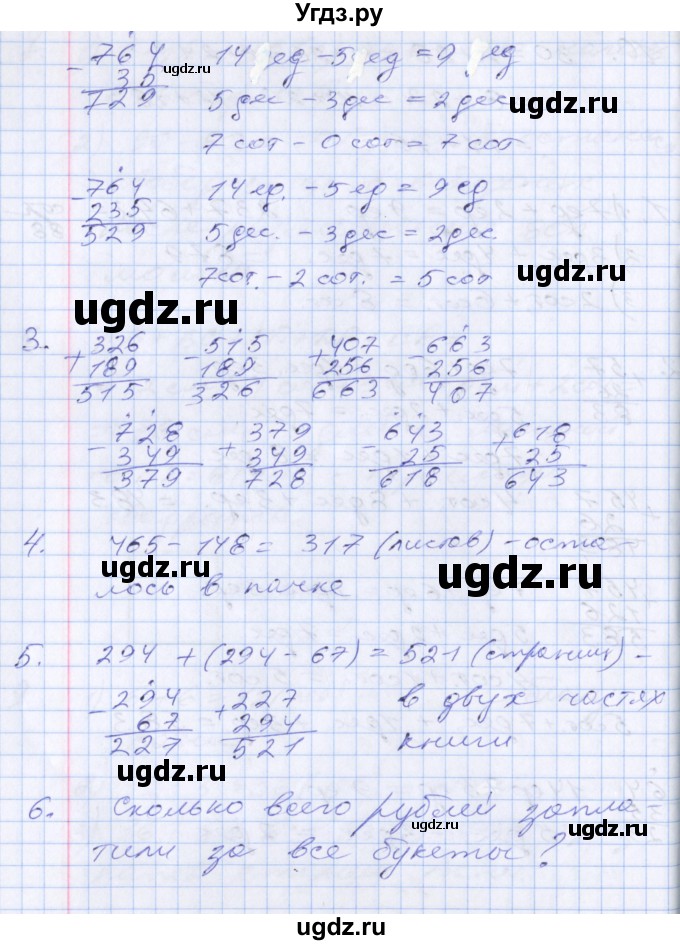 Угдз.ру
- 764 14 ед - 5 ед = 9 ед
35 5 дес - 3 дес = 2 дес
729 7 сот - 0 сот = 7 сот
- 764 14 ед. - 5 ед = 9 ед
235 5 дес. - 3 дес = 2 дес
529 7 сот. - 2 сот. = 5 сот
3. + 326 - 515 + 407 - 663
189 189 256 256
515 326 663 407
- 728 + 379 - 643 + 618
349 349 25 25
379 728 618 643
4. 465 - 148 = 317 (листов) - оста-
лось в пачке
5. 294 + (294 - 67) = 521 (страниц) -
- 294 + 227 в двух частях
67 294 книги
227 521
6. Сколько всего рублей запла-
тили за все букеты?
ugdz.ru
ugdz.ru
ugdz.ru
ugdz.ru
ugdz.ru
ugdz.ru
ugdz.ru
ugdz.ru
ugdz.ru
ugdz.ru
ugdz.ru
ugdz.ru
ugdz.ru